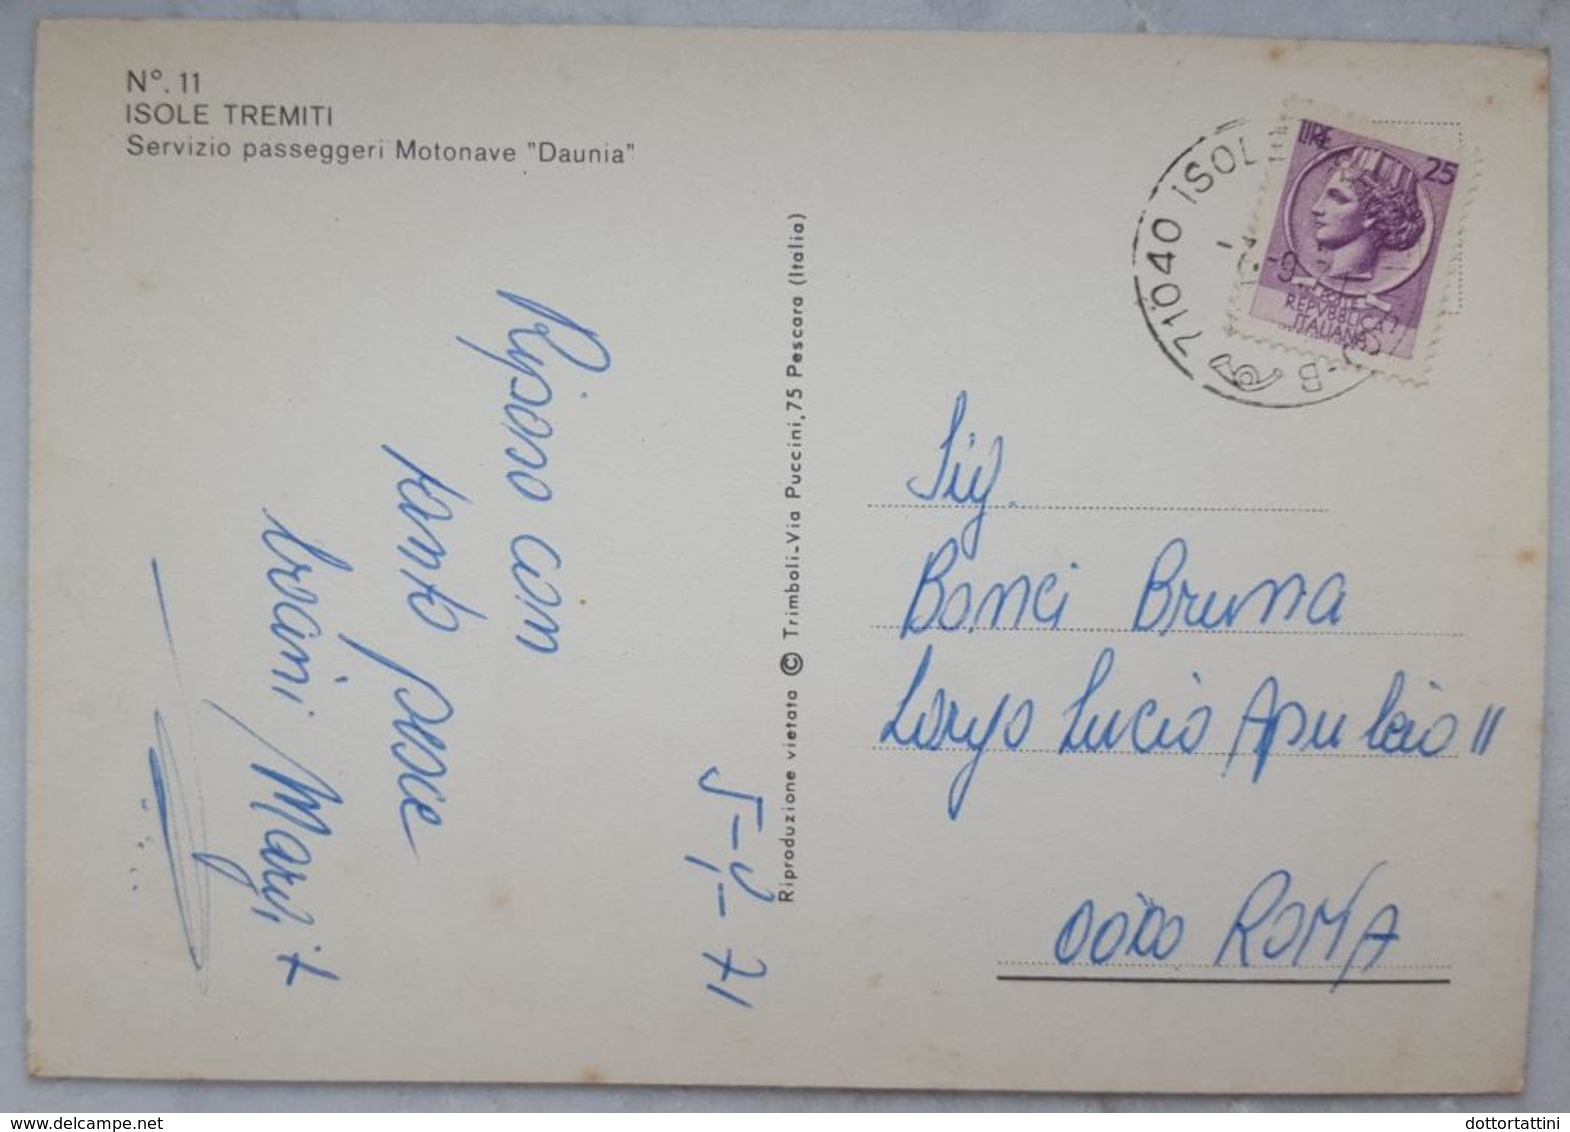 N°. 11
ISOLE TREMITI
Servizio passeggeri Motonave "Daunia"
Riposo con
tanto pesce
Margit
5-V-71
Riproduzione vietata © Trimboli-Via Puccini, 75 Pescara (Italia)
71040 ISOL
LIRE 25
POSTE
REPVBBLICA
ITALIANA
Sig.
Bonci Bruna
Largo Lucio Apuleio 11
ROMA
dottortattini